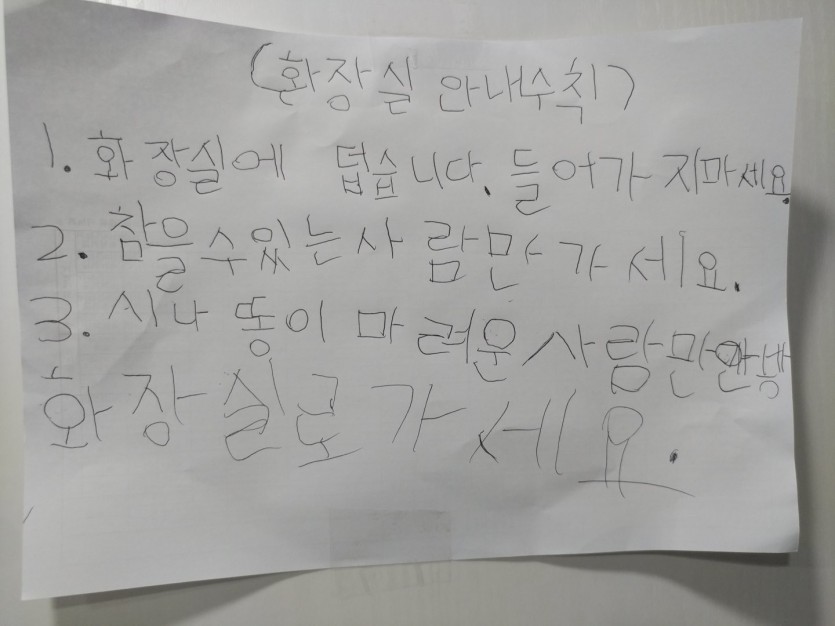 (화장실 안내수칙)
1. 화장실에 덥습니다. 들어가지마세요.
2. 참을수있는사람만가세요.
3. 시나 똥이 마려운사람만안방
화장실로가세요.